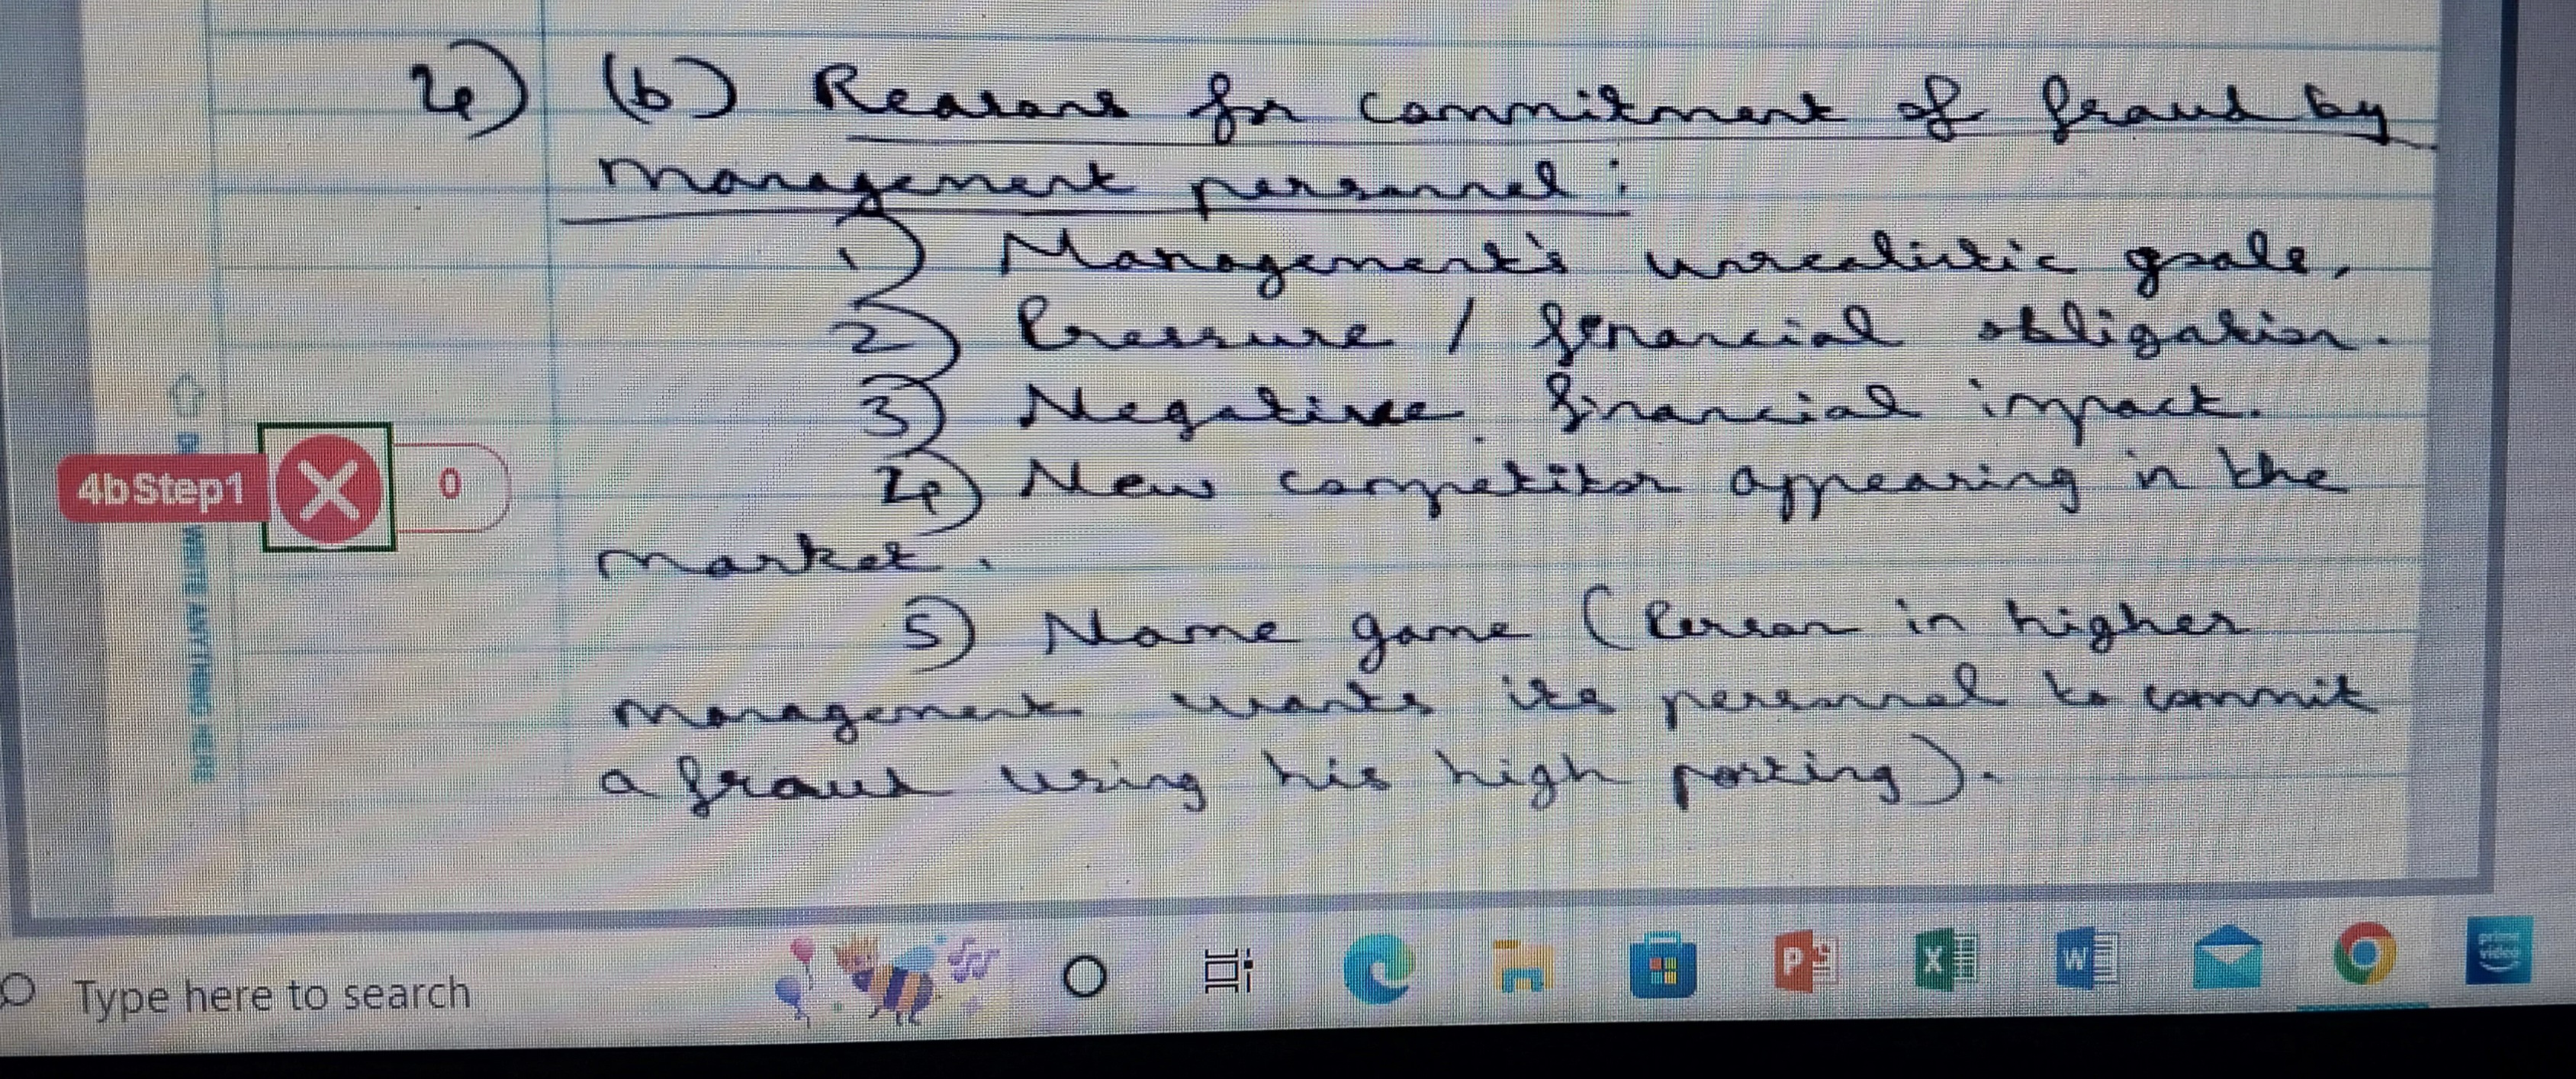 4) (b) Reasons for commitment of fraud by
management personnel :
1) Management's unrealistic goals.
2) Pressure / financial obligation.
3) Negative financial impact.
4bStep1 0
4) New competitor appearing in the
market.
5) Name game (Person in higher
management wants its personnel to commit
a fraud using his high posting).
WRITE ANYTHING HERE
Type here to search
P
X
W
prime
video